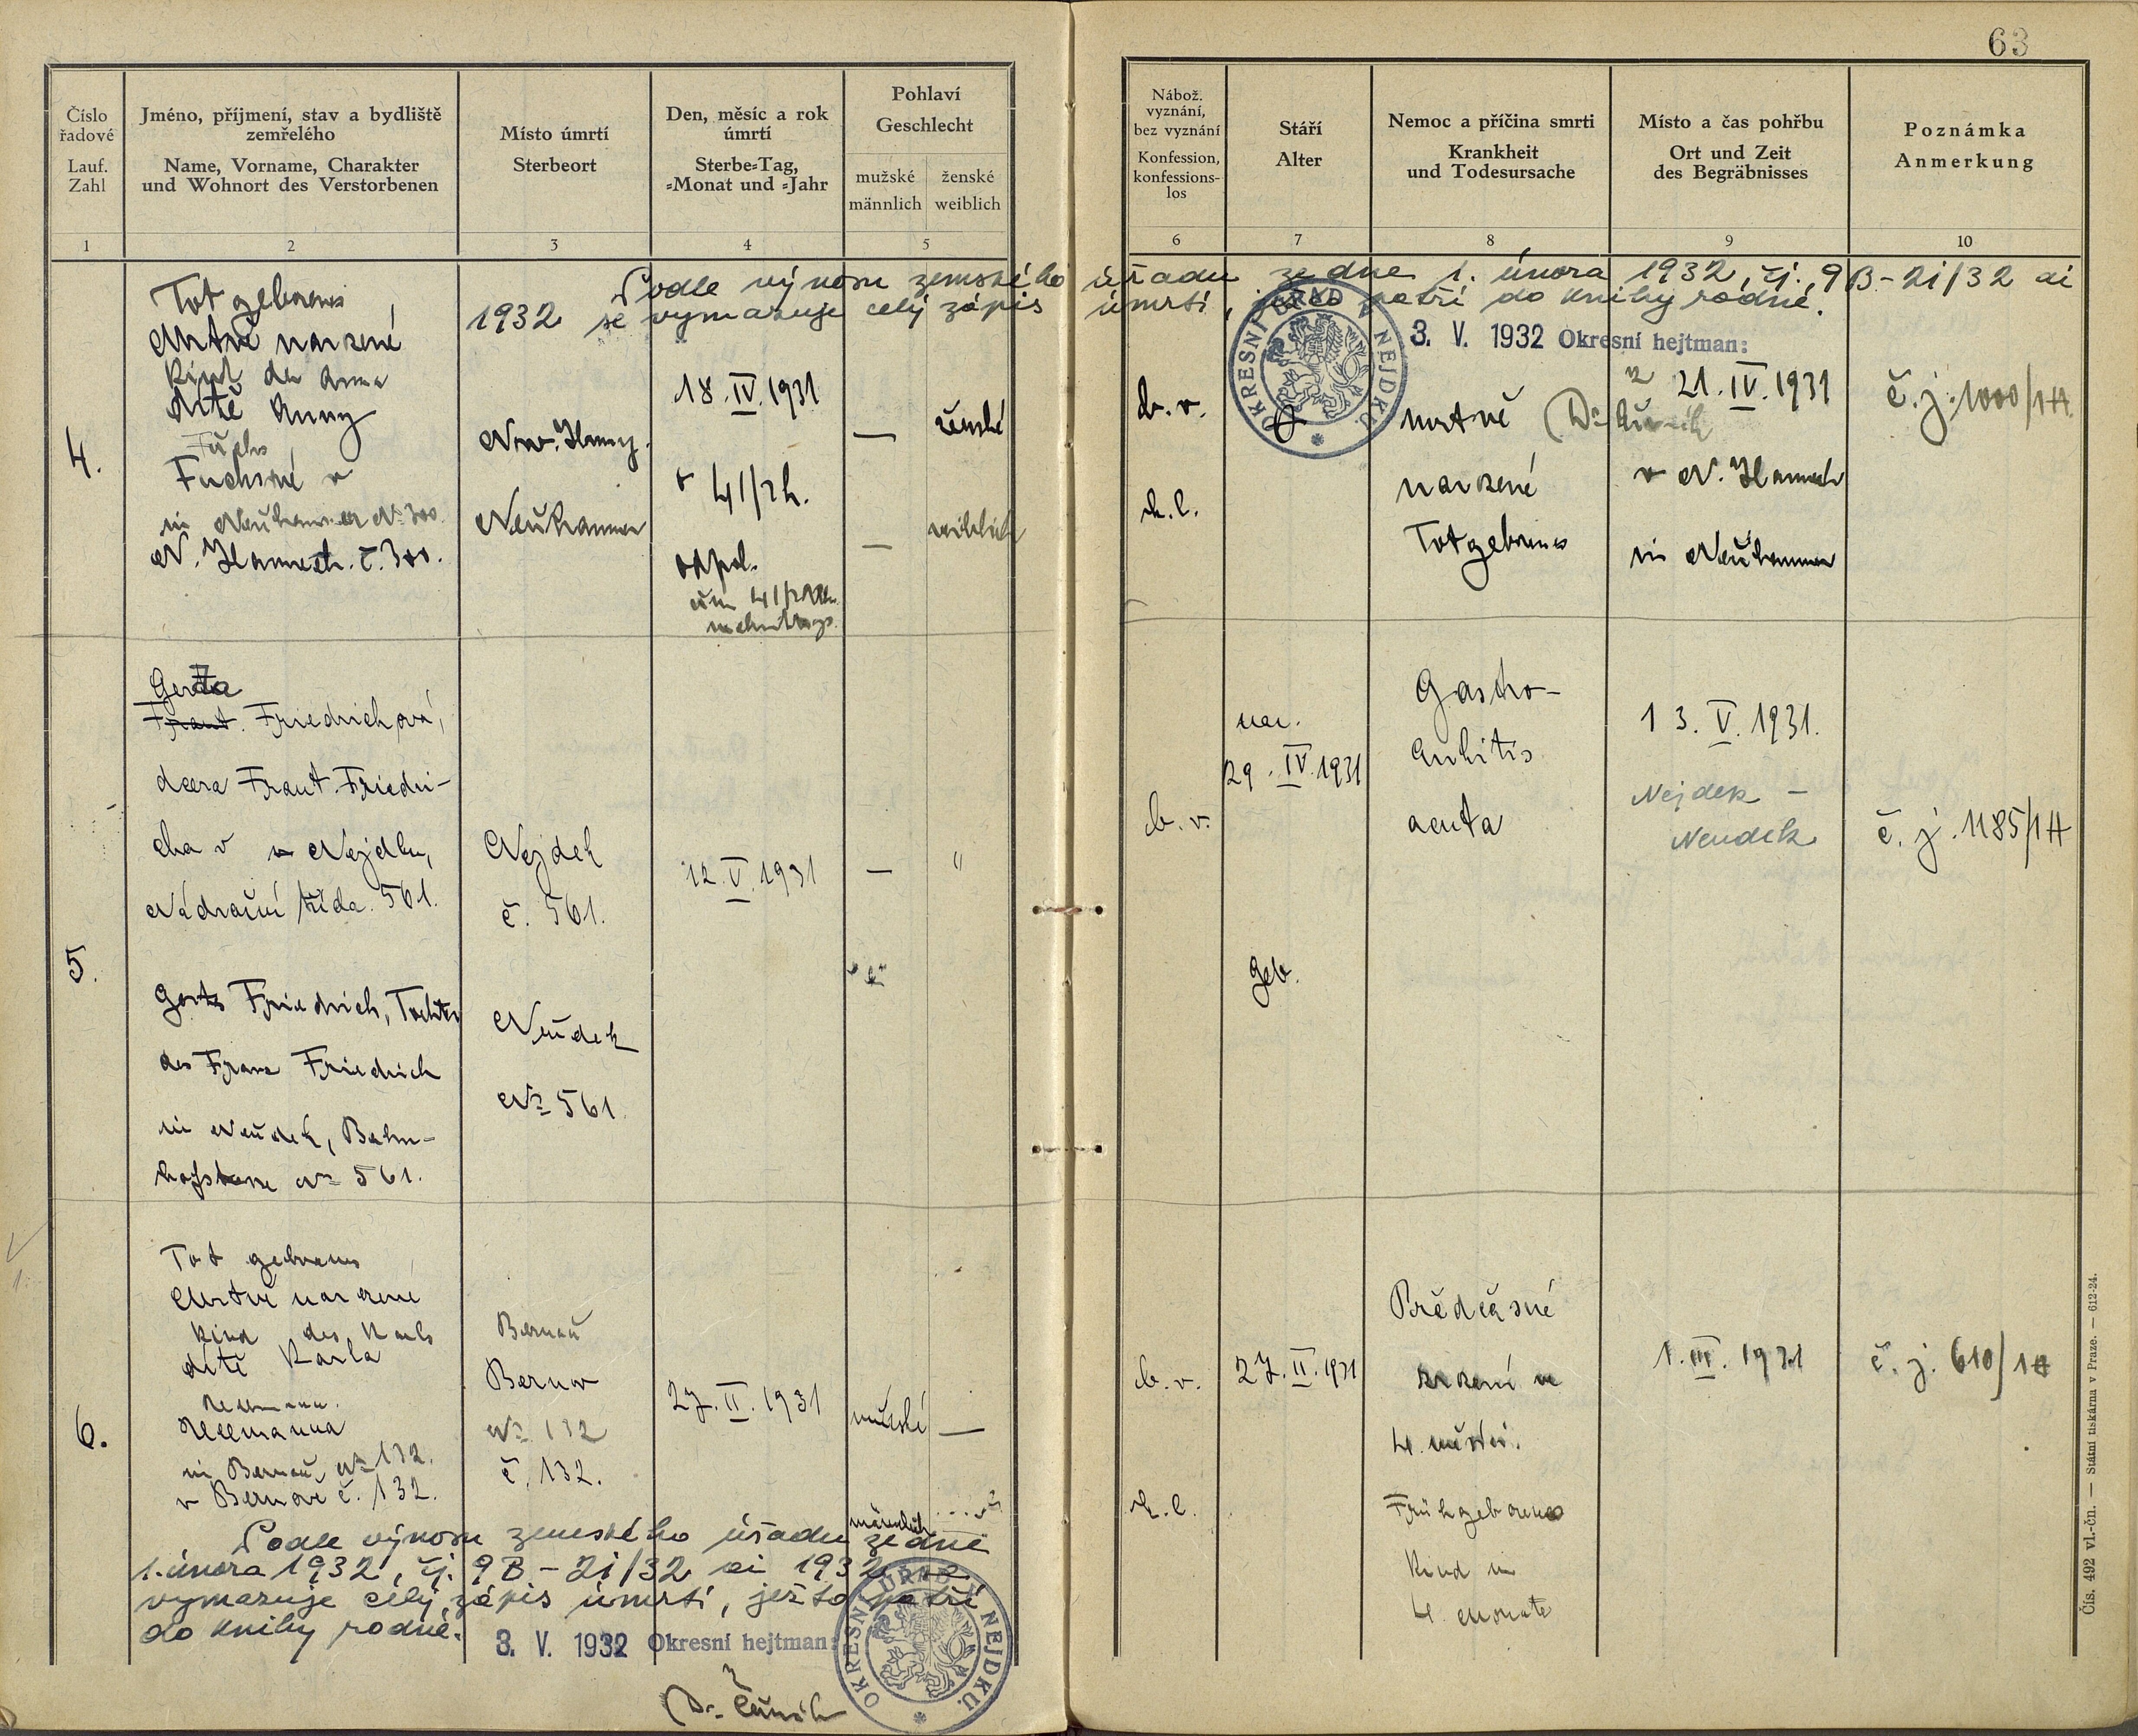 63
Číslo
řadové
Lauf.
Zahl
Jméno, příjmení, stav a bydliště
zemřelého
Name, Vorname, Charakter
und Wohnort des Verstorbenen
Místo úmrtí
Sterbeort
Den, měsíc a rok
úmrtí
Sterbe=Tag,
=Monat und =Jahr
Pohlaví
Geschlecht
mužské
männlich
ženské
weiblich
Nábož.
vyznání,
bez vyznání
Konfession,
konfessions-
los
Stáří
Alter
Nemoc a příčina smrti
Krankheit
und Todesursache
Místo a čas pohřbu
Ort und Zeit
des Begräbnisses
Poznámka
Anmerkung
1 2 3 4 5 6 7 8 9 10
Podle výnosu zemského úřadu ze dne 1. února 1932, čj. 9 B-21/32 ai
1932 se vymazuje celý zápis úmrtí, ježto patří do knihy rodné.
3. V. 1932 Okresní hejtman:
OKRESNÍ ÚŘAD V NEJDKU.
4.
Tot geborenes
Mrtvě narozené
Kind der Anna
dítě Anny
Fuchs
Fuchsové v
in Neuhammer No 300.
N. Hamech. č. 300.
Nov. Hamry.
Neuhammer
18. IV. 1931
v 4 1/2 h.
odpol.
um 4 1/2 Uhr
nachmittags.
—
ženské
—
weiblich
b. v.
k. l.
mrtvě
narozené
Totgeborenes
21. IV. 1931
v N. Hamech
in Neuhammer
č. j. 1000/1A
5.
Gerta
Frant. Friedrichová,
dcera Frant. Friedri-
cha v Nejdku,
Nádražní třída 561.
Gerta Friedrich, Tochter
des Franz Friedrich
in Neudek, Bahn-
hofstrasse No 561.
Nejdek
č. 561.
Neudek
No 561
12. V. 1931
—
"
b. v.
nar.
29. IV. 1931
geb.
Gastro-
acuta
13. V. 1931.
Nejdek -
Neudek
č. j. 1185/1A
6.
Tot geborenes
Mrtvě narozené
Kind des Karls
dítě Karla
in Bernau No 132.
v Bernově č. 132.
Bernau
Bernov
No 132
č. 132.
27. II. 1931
mužské
—
männlich
b. v.
k. l.
27. II. 1931
Předčasné
zrození ve
4. měsíci.
Frühgeborenes
Kind im
4. Monate
1. III. 1931
č. j. 610/1A
Podle výnosu zemského úřadu ze dne
1. února 1932, čj. 9 B-21/32 ai 1932 se
vymazuje celý zápis úmrtí, ježto patří
do knihy rodné.
3. V. 1932 Okresní hejtman:
OKRESNÍ ÚŘAD V NEJDKU.
Čís. 492 vl.-čn. — Státní tiskárna v Praze. — 612-24.